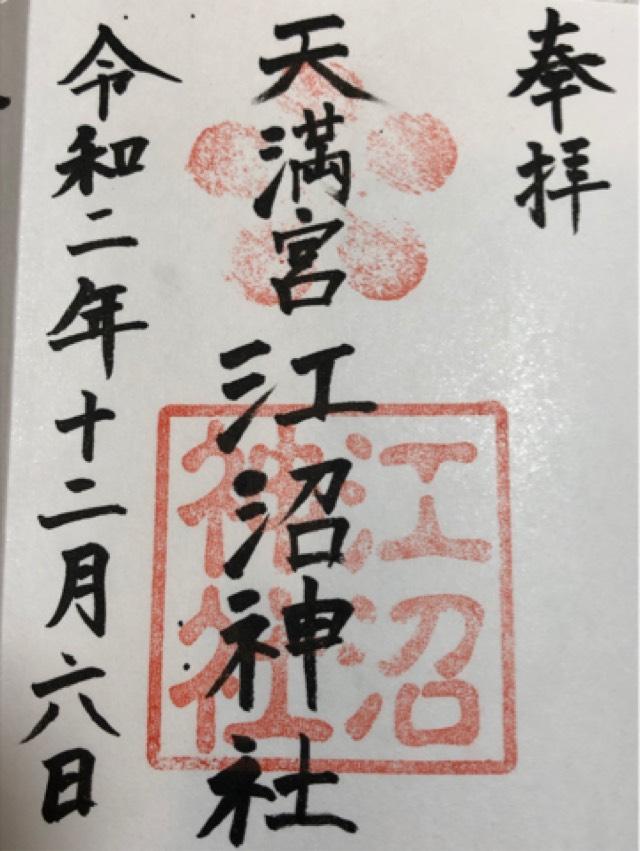 奉拝
天満宮江沼神社
江沼神社
令和二年十二月六日